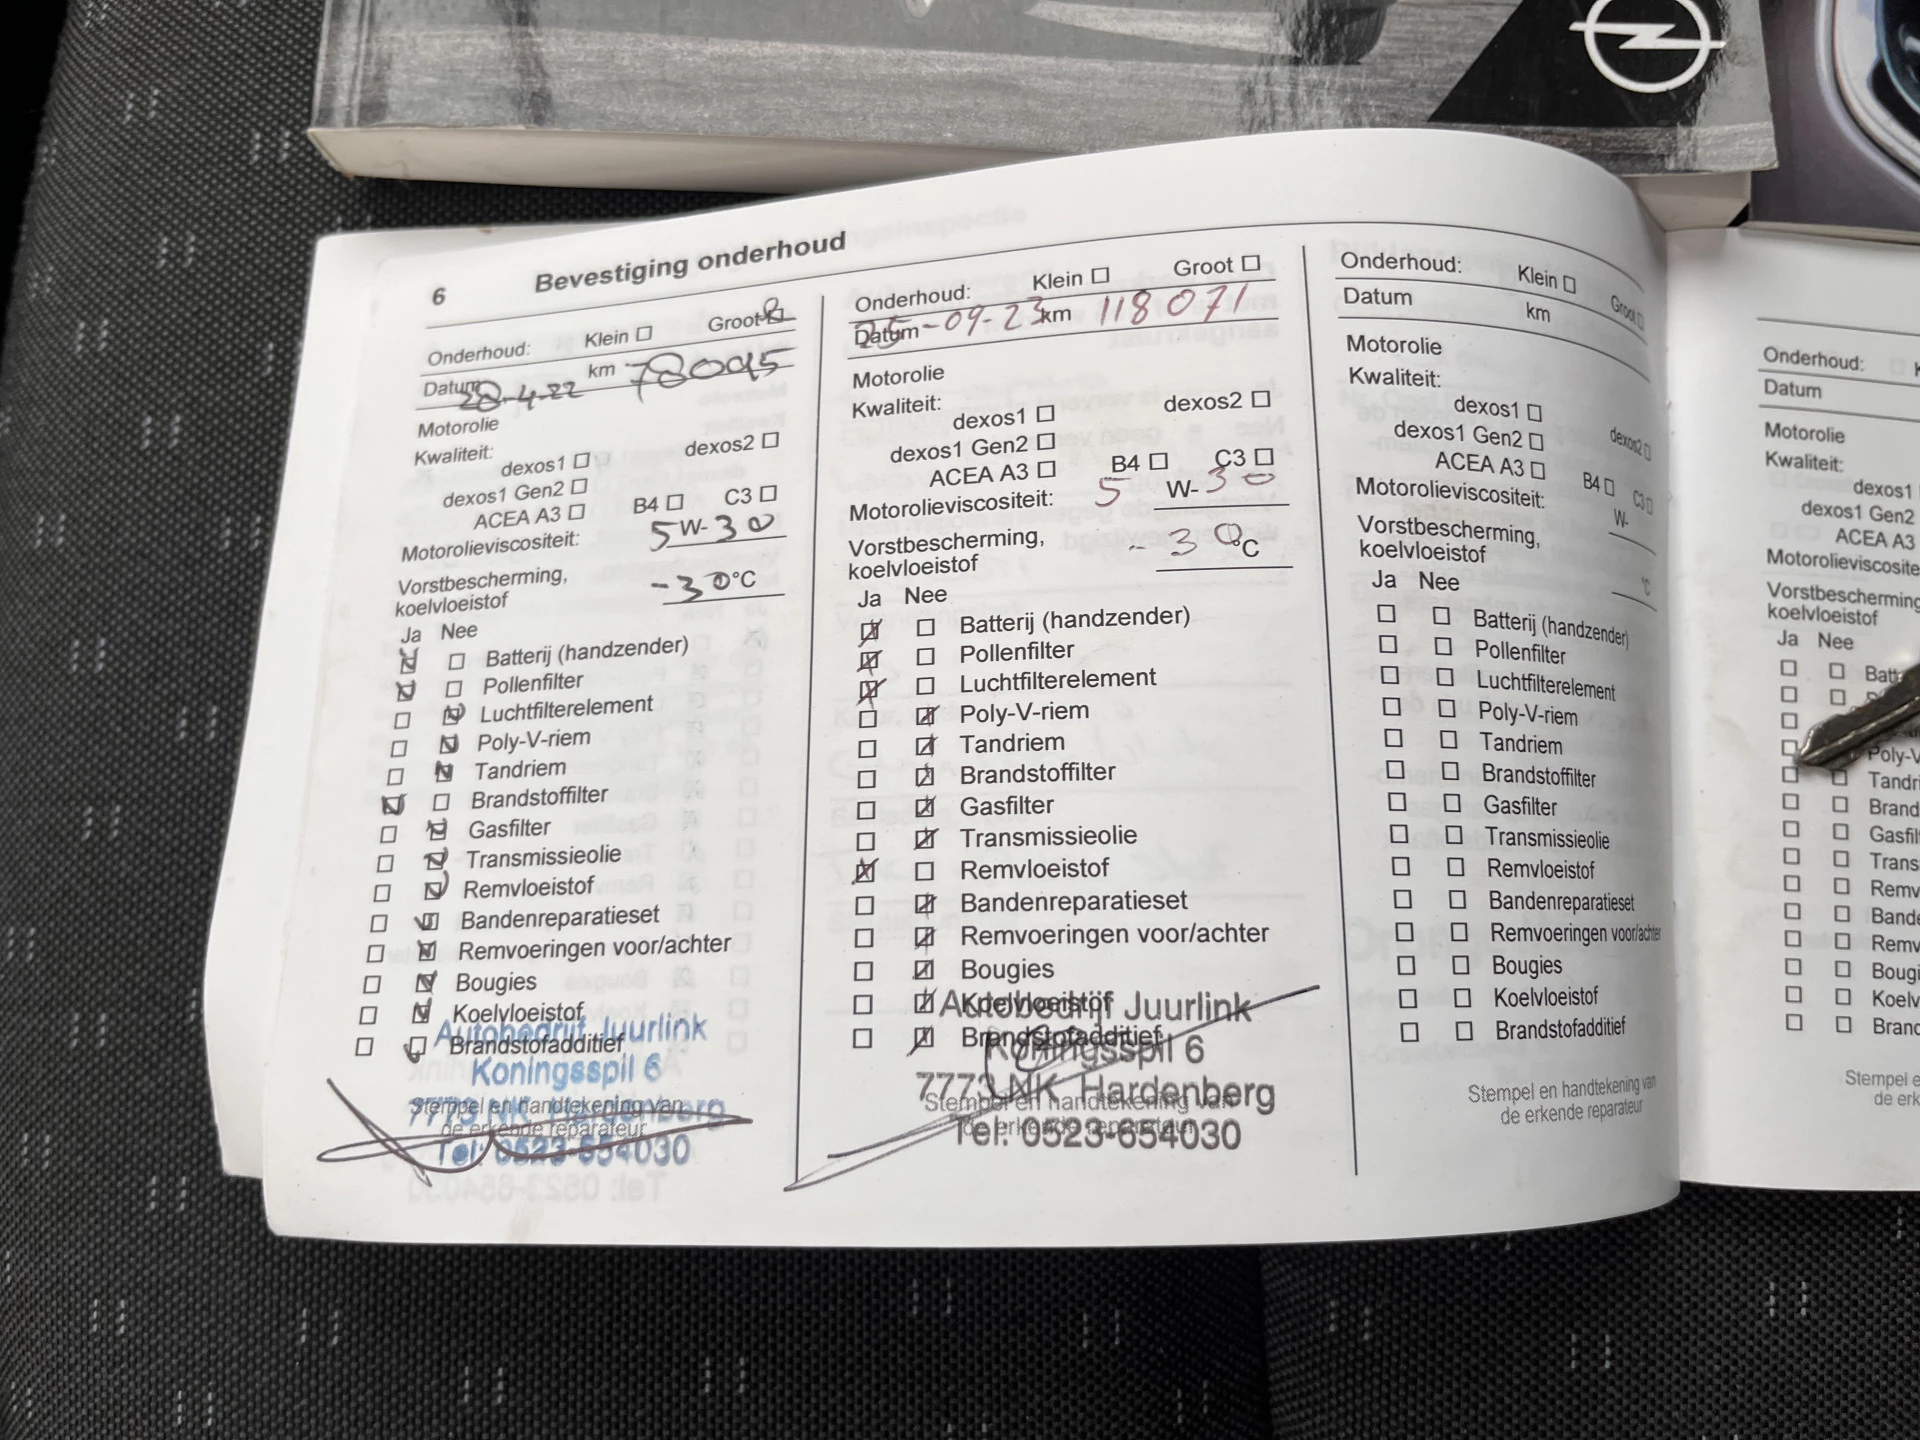 6 Bevestiging onderhoud
Onderhoud: Klein Groot
Datum 28-4-22 km 78095
Motorolie
Kwaliteit:
dexos1 dexos2
dexos1 Gen2
ACEA A3 B4 C3
Motorolieviscositeit: 5 W-30
Vorstbescherming,
koelvloeistof -30°C
Ja Nee
Batterij (handzender)
Pollenfilter
Luchtfilterelement
Poly-V-riem
Tandriem
Brandstoffilter
Gasfilter
Transmissieolie
Remvloeistof
Bandenreparatieset
Remvoeringen voor/achter
Bougies
Koelvloeistof
Brandstofadditief
Autobedrijf Juurlink
Koningsspil 6
7773 NK Hardenberg
Tel: 0523-654030
Stempel en handtekening van
de erkende reparateur
Onderhoud: Klein Groot
Datum 25-09-23 km 118071
Motorolie
Kwaliteit:
dexos1 dexos2
dexos1 Gen2
ACEA A3 B4 C3
Motorolieviscositeit: 5 W-30
Vorstbescherming,
koelvloeistof -30°C
Ja Nee
Batterij (handzender)
Pollenfilter
Luchtfilterelement
Poly-V-riem
Tandriem
Brandstoffilter
Gasfilter
Transmissieolie
Remvloeistof
Bandenreparatieset
Remvoeringen voor/achter
Bougies
Koelvloeistof
Brandstofadditief
Autobedrijf Juurlink
Koningsspil 6
7773 NK Hardenberg
Tel: 0523-654030
Stempel en handtekening van
de erkende reparateur
Onderhoud: Klein Groot
Datum km
Motorolie
Kwaliteit:
dexos1 dexos2
dexos1 Gen2
ACEA A3 B4 C3
Motorolieviscositeit: W-
Vorstbescherming,
koelvloeistof °C
Ja Nee
Batterij (handzender)
Pollenfilter
Luchtfilterelement
Poly-V-riem
Tandriem
Brandstoffilter
Gasfilter
Transmissieolie
Remvloeistof
Bandenreparatieset
Remvoeringen voor/achter
Bougies
Koelvloeistof
Brandstofadditief
Stempel en handtekening van
de erkende reparateur
Onderhoud: K
Datum
Motorolie
Kwaliteit:
dexos1
dexos1 Gen2
ACEA A3
Motorolieviscosite
Vorstbescherming
koelvloeistof
Ja Nee
Batt
Poly-V
Tandri
Brand
Gasfilt
Trans
Remv
Bande
Remv
Bougi
Koelv
Branc
Stempel e
de erk